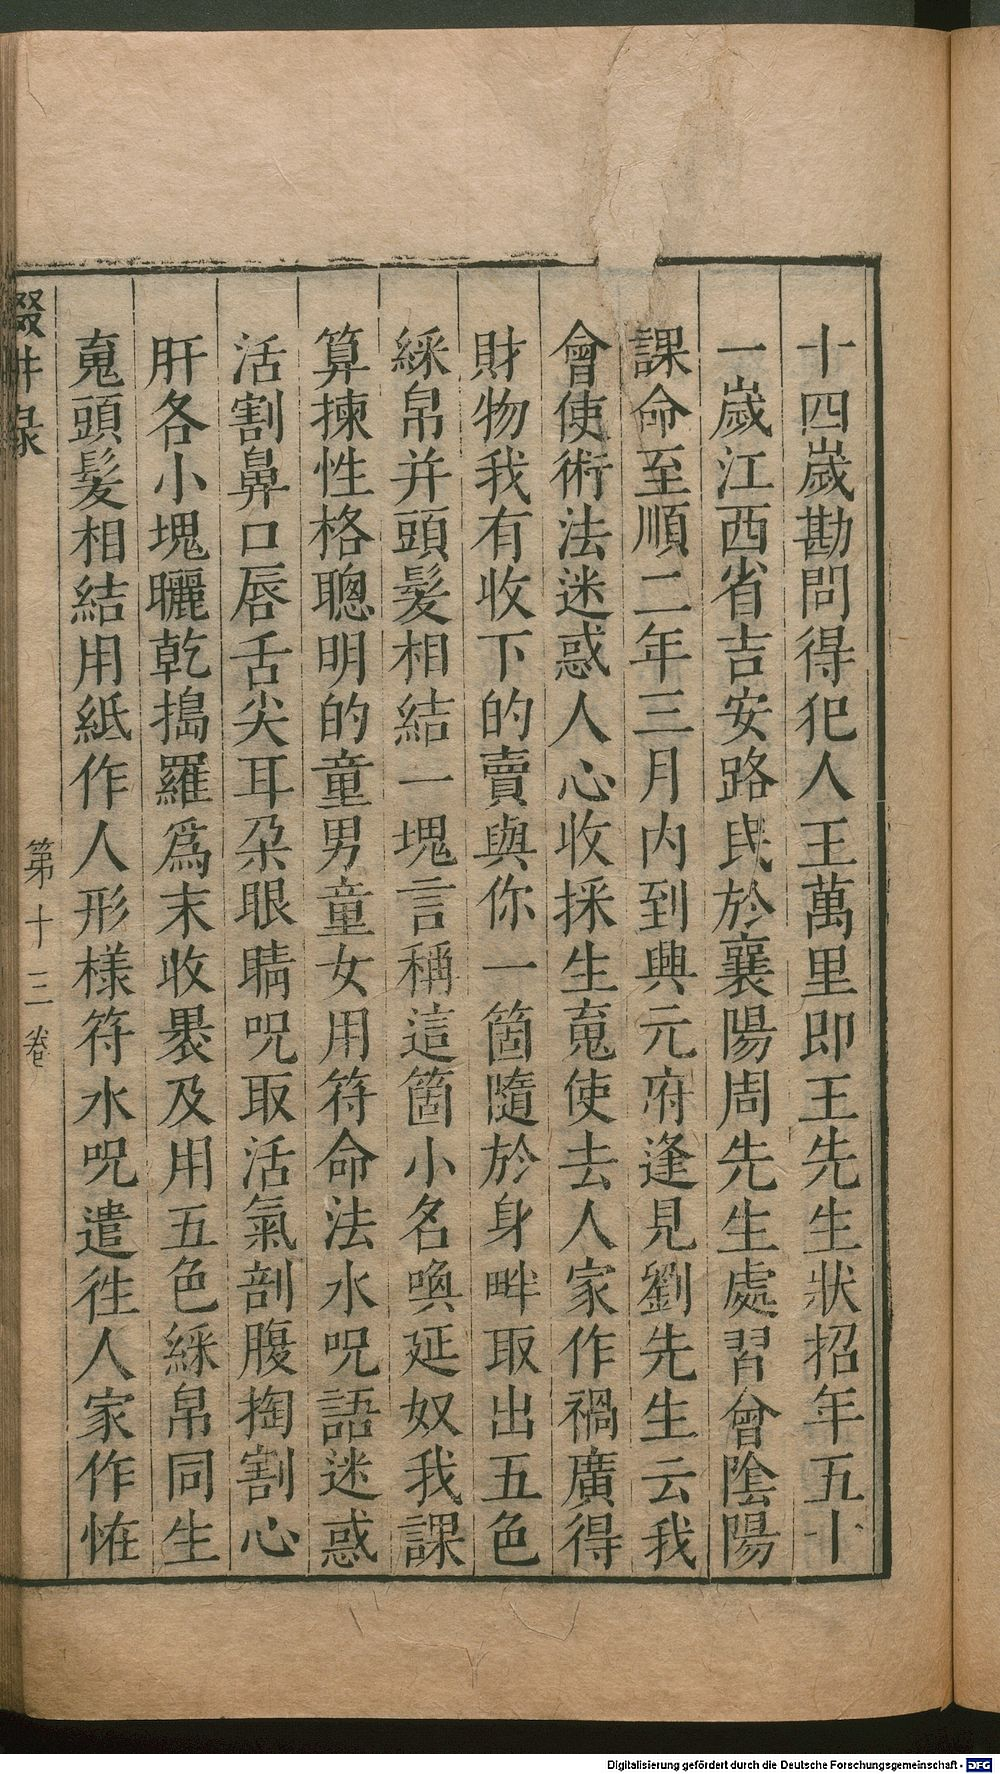 十四歲勘問得犯人王萬里即王先生狀招年五十
一歲江西省吉安路民於襄陽周先生處習會陰陽
課命至順二年三月内到興元府逢見劉先生云我
會使術法迷惑人心收採生䰟使去人家作禍廣得
財物我有收下的賣與你一箇隨於身畔取出五色
綵帛并頭髮相結一塊言稱這箇小名喚延奴我課
算揀性格聰明的童男童女用符命法水呪語迷惑
活割鼻口唇舌尖耳朶眼睛呪取活氣剖腹掏割心
肝各小塊曬乾搗羅爲末收褁及用五色綵帛同生
䰟頭髮相結用紙作人形樣符水呪遣徃人家作恠
輟畊錄
第十三卷
Digitalisierung gefördert durch die Deutsche Forschungsgemeinschaft - DFG